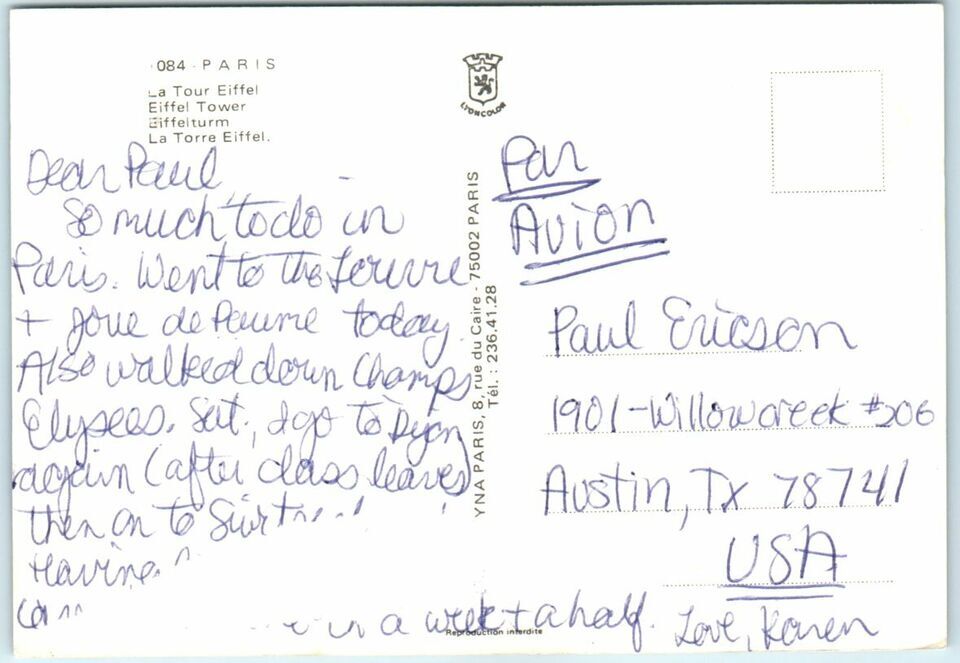 084 · PARIS
La Tour Eiffel
Eiffel Tower
Eiffelturm
La Torre Eiffel.
LYONCOLOR
Dear Paul,
So much to do in
Paris. Went to the Louvre
+ Joue de Paume today.
Also walked down Champs
Elysees. Sat., I go to Dijon
again (after class leaves)
then on to
in a week + a half. Love, Karen
YNA PARIS, 8, rue du Caire - 75002 PARIS
Tél. : 236.41.28
Par
Avion
Paul Ericson
1901 - Willowcreek #206
Austin, Tx 78741
USA
Reproduction interdite